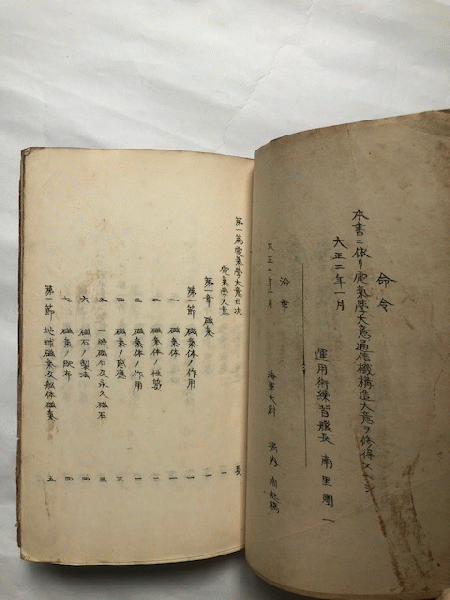 命令
本書ニ依リ電氣學大意通信機構造大意ヲ修得スベシ
大正二年一月
運用術練習艦長 南里團一
海軍大尉
第一篇電氣學大意目次
電氣學大意
第一章 磁氣 一
第一節 磁氣体ノ作用 一
一、磁氣体 一
二、磁氣体ノ性質 一
三、磁氣体ノ作用 二
四、磁氣ノ感應 二
五、一時磁石及永久磁石 三
六、磁石ノ製法 四
七、磁氣ノ配布 四
第二節 地球磁氣及船体磁氣 五